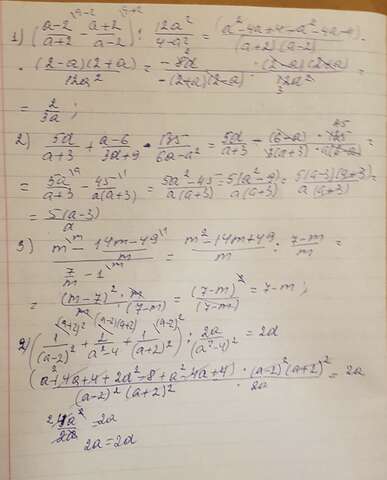 1) (a-2/a+2 \a-2 - a+2/a-2 \a+2) : 12a²/4-a² = (a²-4a+4-a²-4a-4)/(a+2)(a-2) ·
· (2-a)(2+a)/12a² = -8a/-(2+a)(2-a) · (2-a)(2+a)/12a² 3 =
= 2/3a ;
2) 5a/a+3 + a-6/3a+9 · 135/6a-a² = 5a/a+3 - (6-a) · 135 45/3(a+3) · a(6-a) =
= 5a \a/a+3 - 45 \1/a(a+3) = 5a²-45/a(a+3) = 5(a²-9)/a(a+3) = 5(a-3)(a+3)/a(a+3) =
= 5(a-3)/a
3) m \m - 14m-49 \1/m / 7/m - 1 \m = m²-14m+49/m : 7-m/m =
= (m-7)² · m/m · (7-m) = (7-m)²/(7-m) = 7-m ;
2) (1/(a-2)² \(a+2)² + 1/a²-4 \(a-2)(a+2) + 1/(a+2)² \(a-2)²) : 2a/(a²-4)² = 2a
(a²+4a+4+2a²-8+a²-4a+4)/(a-2)²(a+2)² · (a-2)²(a+2)²/2a = 2a
2 4a²/2a = 2a
2a = 2a